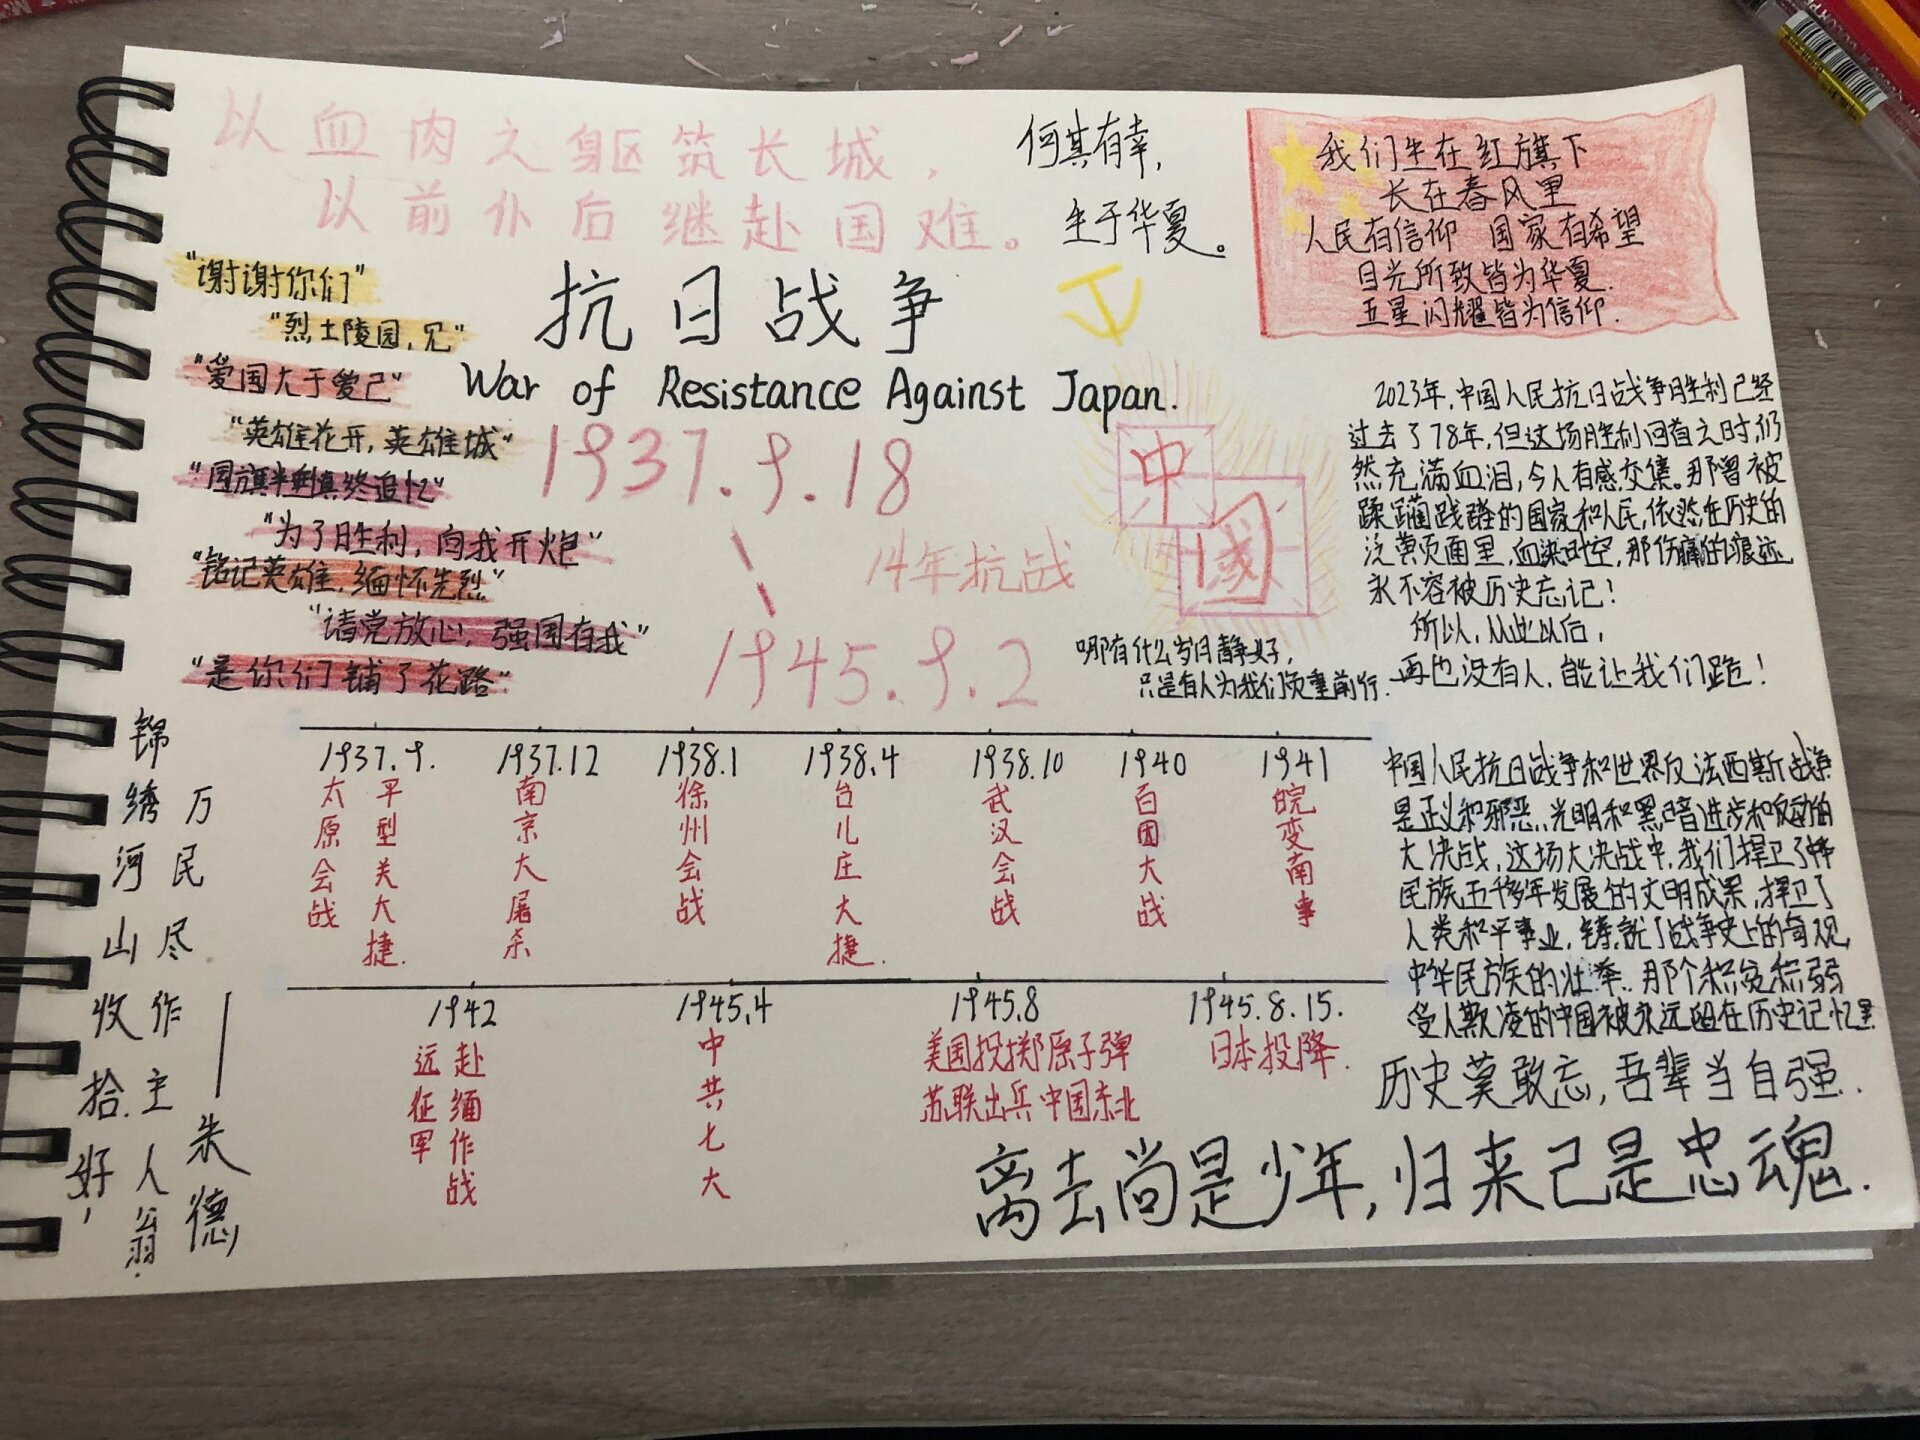 以血肉之躯筑长城，
以前仆后继赴国难。
何其有幸，
生于华夏。
我们生在红旗下
长在春风里
人民有信仰 国家有希望
目光所致皆为华夏.
五星闪耀皆为信仰.
"谢谢你们"
"烈士陵园,见"
"爱国大于爱己"
"英雄花开,英雄城"
"国旗半垂慎终追忆"
"为了胜利,向我开炮"
"铭记英雄,缅怀先烈"
"请党放心,强国有我"
"是你们铺了花路"
抗日战争
War of Resistance Against Japan.
1937.9.18
14年抗战
1945.9.2
中
國
哪有什么岁月静好,
只是有人为我们负重前行.
2023年,中国人民抗日战争胜利已经
过去了78年,但这场胜利回首之时,仍
然充满血泪,令人百感交集。那曾被
蹂躏践踏的国家和人民,依然在历史的
泛黄页面里,血染时空,那伤痛的痕迹
永不容被历史忘记!
所以,从此以后,
再也没有人,能让我们跪!
1937.9.
太原会战
平型关大捷.
1937.12
南京大屠杀
1938.1
徐州会战
1938.4
台儿庄大捷.
1938.10
武汉会战
1940
百团大战
1941
皖变南事
1942
远征军
赴缅作战
1945.4
中共七大
1945.8
美国投掷原子弹
苏联出兵中国东北
1945.8.15.
日本投降.
中国人民抗日战争和世界反法西斯战争
是正义和邪恶、光明和黑暗进步和反动的
大决战,这场大决战中,我们捍卫了中华
民族五千多年发展的文明成果,捍卫了
人类和平事业,铸就了战争史上的奇观,
中华民族的壮举.那个积贫积弱
受人欺凌的中国被永远留在历史记忆里
历史莫敢忘,吾辈当自强.
离去尚是少年,归来已是忠魂.
锦绣河山收拾好,
万民尽作主人翁.
——朱德